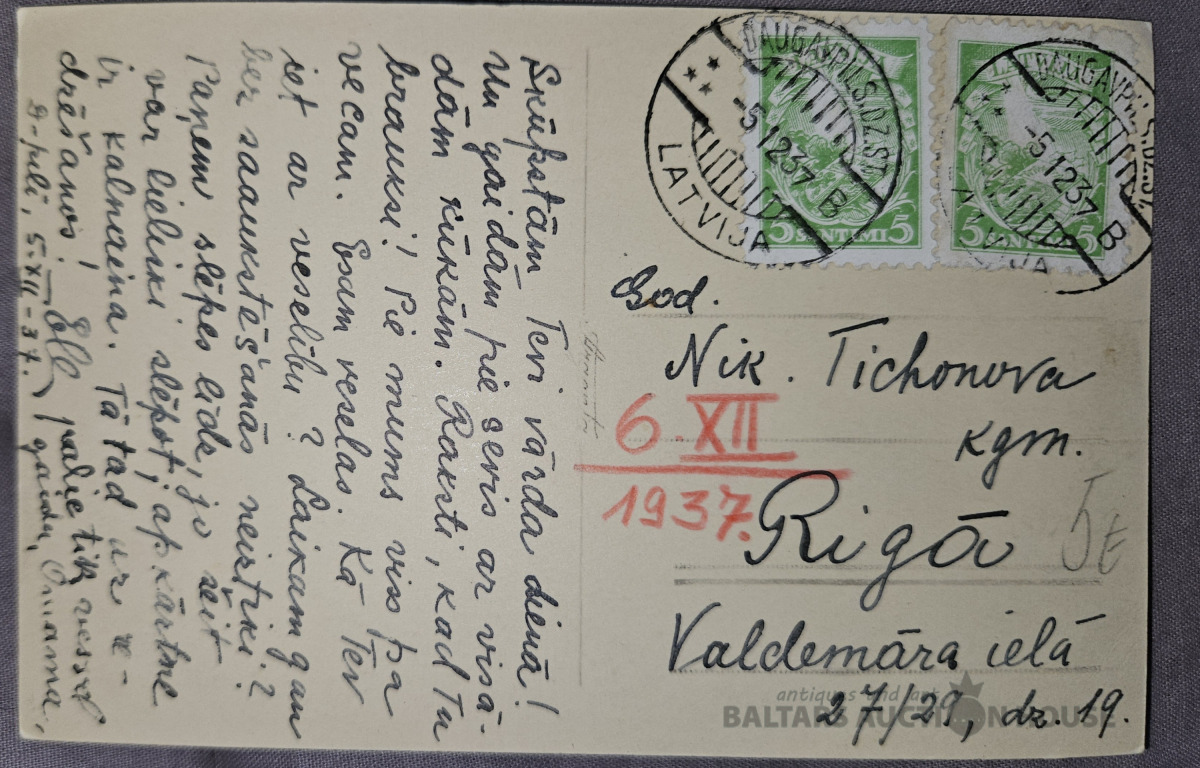 Skūpstām Tevi vārda dienā!
Un gaidām pie sevis ar visā-
dām kūkām. Raksti, kad Tu
brauksi! Pie mums viss pa
vecam. Esam veselas. Kā Tev
iet ar veselību? Laikam gan
bez saaukstēšanās neiztiki?
Paņem slēpes līdz, jo šeit
var lieliski slēpot, apkārtne
ir kalnaina. Tā tad uz re-
dzēšanos!
paliec tik vesela
gaidu, Omama,
D-pilī, 5.XII-37.
DAUGAVPILS DZ.ST.
-5 12 37 B
LATVIJA
5 SANTIMI 5
LATVIJA
DAUGAVPILS DZ.ST.
-5 12 37 B
LATVIJA
5 SANTIMI 5
God.
Nik. Tichonova
kgm.
6.XII
1937.
Rīgā
5€
Valdemāra ielā
27/29, dz. 19.
antiques and art
BALTARS AUCTION HOUSE